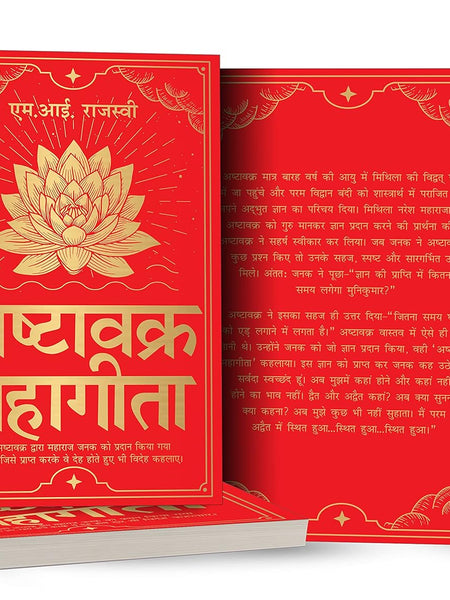 एम.आई. राजस्वी
ष्टावक्र
हागीता
ष्टावक्र द्वारा महाराज जनक को प्रदान किया गया
जिसे प्राप्त करके वे देह होते हुए भी विदेह कहलाए।
अष्टावक्र मात्र बारह वर्ष की आयु में मिथिला की विद्वत्
में जा पहुंचे और परम विद्वान बंदी को शास्त्रार्थ में पराजित
अपने अद्भुत ज्ञान का परिचय दिया। मिथिला नरेश महाराज
अष्टावक्र को गुरु मानकर ज्ञान प्रदान करने की प्रार्थना की
अष्टावक्र ने सहर्ष स्वीकार कर लिया। जब जनक ने अष्टाव
कुछ प्रश्न किए तो उनके सहज, स्पष्ट और सारगर्भित उ
मिले। अंततः जनक ने पूछा–“ज्ञान की प्राप्ति में कितन
समय लगेगा मुनिकुमार?”
अष्टावक्र ने इसका सहज ही उत्तर दिया–“जितना समय घ
को एड़ लगाने में लगता है।” अष्टावक्र वास्तव में ऐसे ही
नी थे। उन्होंने जनक को जो ज्ञान प्रदान किया, वही ‘अष्ट
महागीता’ कहलाया। इस ज्ञान को प्राप्त कर जनक कह उठे
सर्वदा स्वच्छंद हूं! अब मुझमें कहां होने और कहां नहीं
होने का भाव नहीं। द्वैत और अद्वैत कहां? अब क्या सुनन
क्या कहना? अब मुझे कुछ भी नहीं सुहाता। मैं परम
अद्वैत में स्थित हुआ...स्थित हुआ...स्थित हुआ।”
हागीता